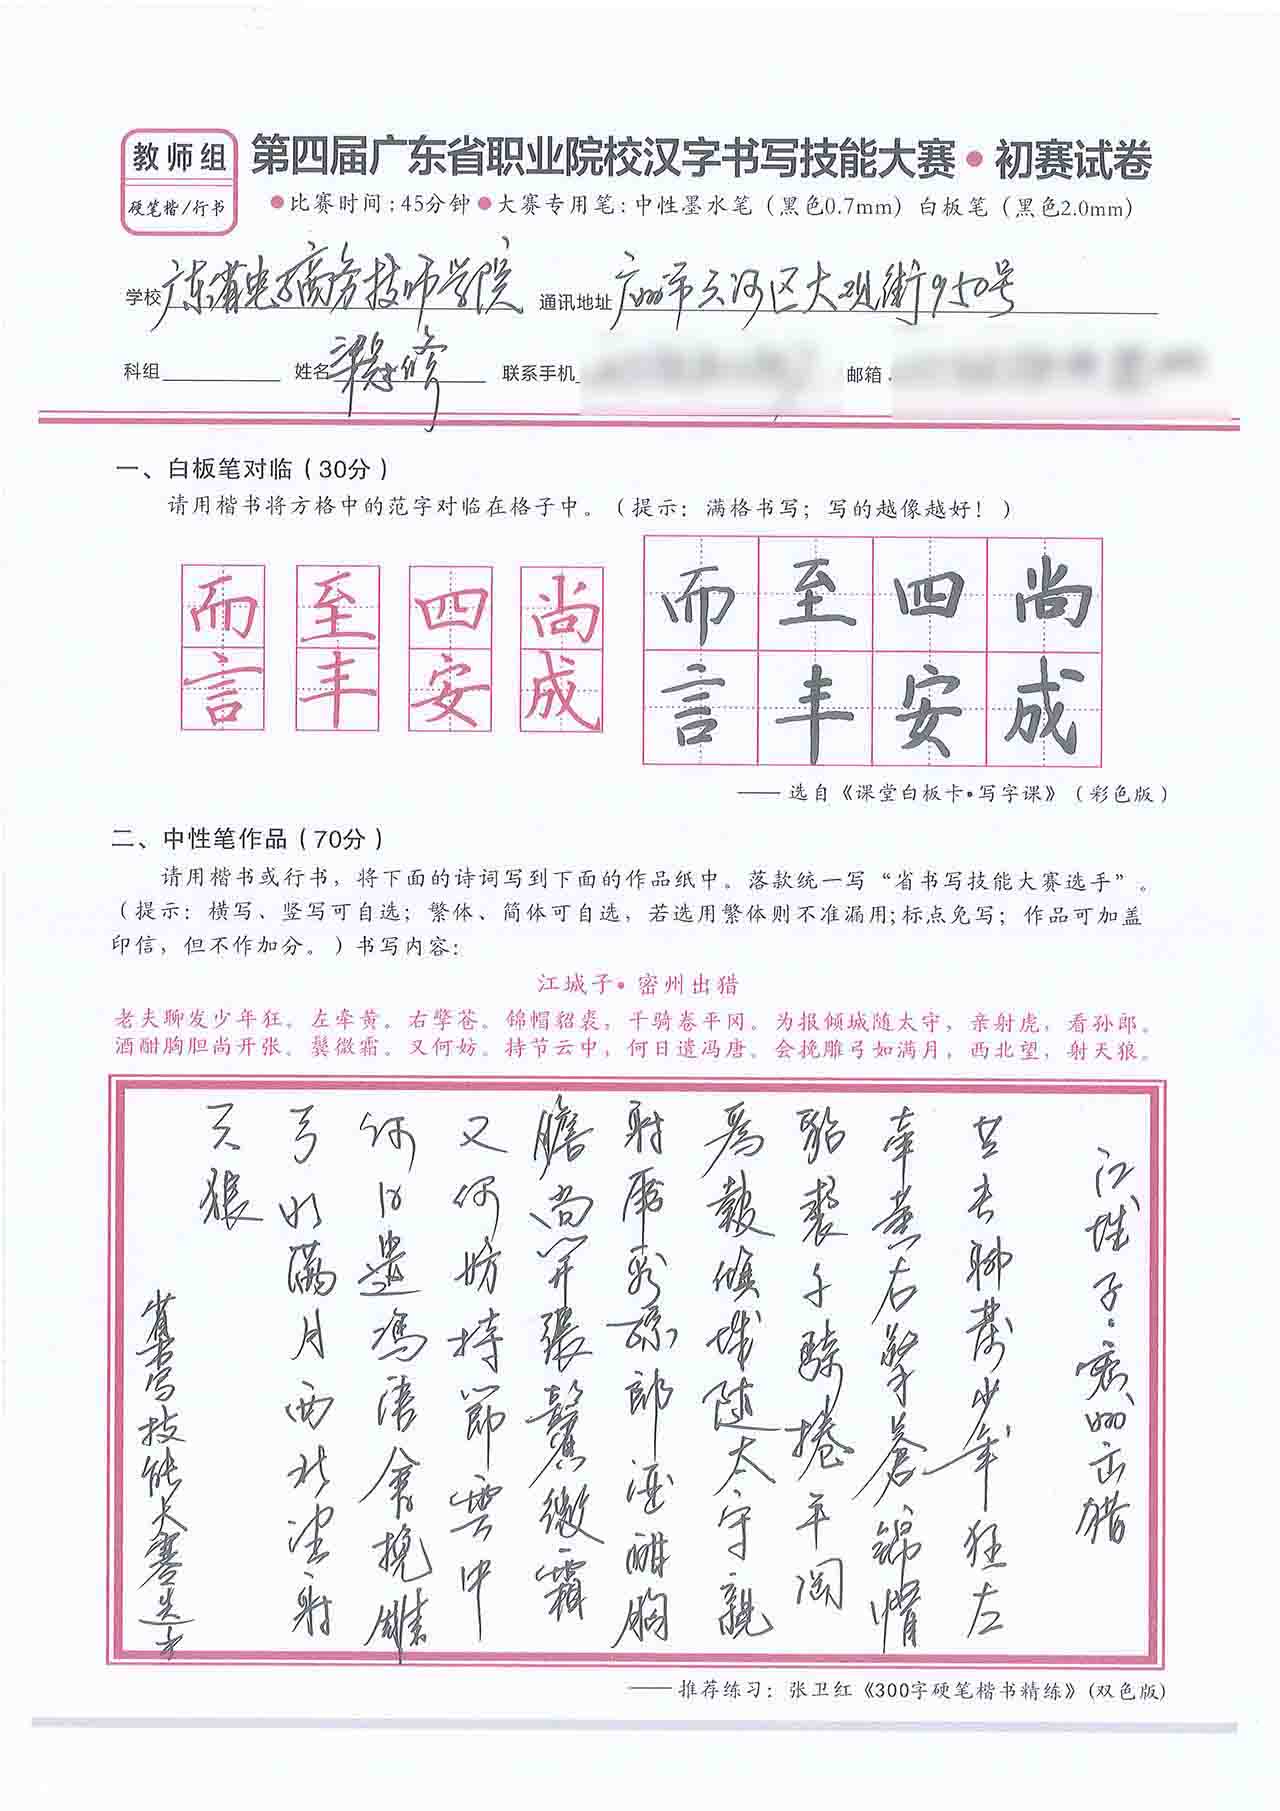 教师组
硬笔楷/行书
第四届广东省职业院校汉字书写技能大赛•初赛试卷
●比赛时间:45分钟●大赛专用笔:中性墨水笔（黑色0.7mm）白板笔（黑色2.0mm）
学校 广东省电子商务技师学院 通讯地址 广州市天河区大观街950号
科组 姓名 联系手机 邮箱
一、白板笔对临（30分）
请用楷书将方格中的范字对临在格子中。（提示：满格书写；写的越像越好！）
而至四尚 而至四尚
言丰安成 言丰安成
——选自《课堂白板卡•写字课》（彩色版）
二、中性笔作品（70分）
请用楷书或行书，将下面的诗词写到下面的作品纸中。落款统一写“省书写技能大赛选手”。
（提示：横写、竖写可自选；繁体、简体可自选，若选用繁体则不准漏用;标点免写；作品可加盖
印信，但不作加分。）书写内容：
江城子•密州出猎
老夫聊发少年狂。左牵黄。右擎苍。锦帽貂裘，千骑卷平冈。为报倾城随太守，亲射虎，看孙郎。
酒酣胸胆尚开张。鬓微霜。又何妨。持节云中，何日遣冯唐。会挽雕弓如满月，西北望，射天狼。
江城子·密州出猎
老夫聊發少年狂左
牵黄右擎蒼錦帽
貂裘千騎捲平岡
爲報傾城随太守親
射虎看孫郎酒酣胸
膽尚開張鬢微霜
又何妨持節雲中
何日遣馮唐會挽雕
弓如滿月西北望射
天狼
省书写技能大赛选手
——推荐练习：张卫红《300字硬笔楷书精练》(双色版)